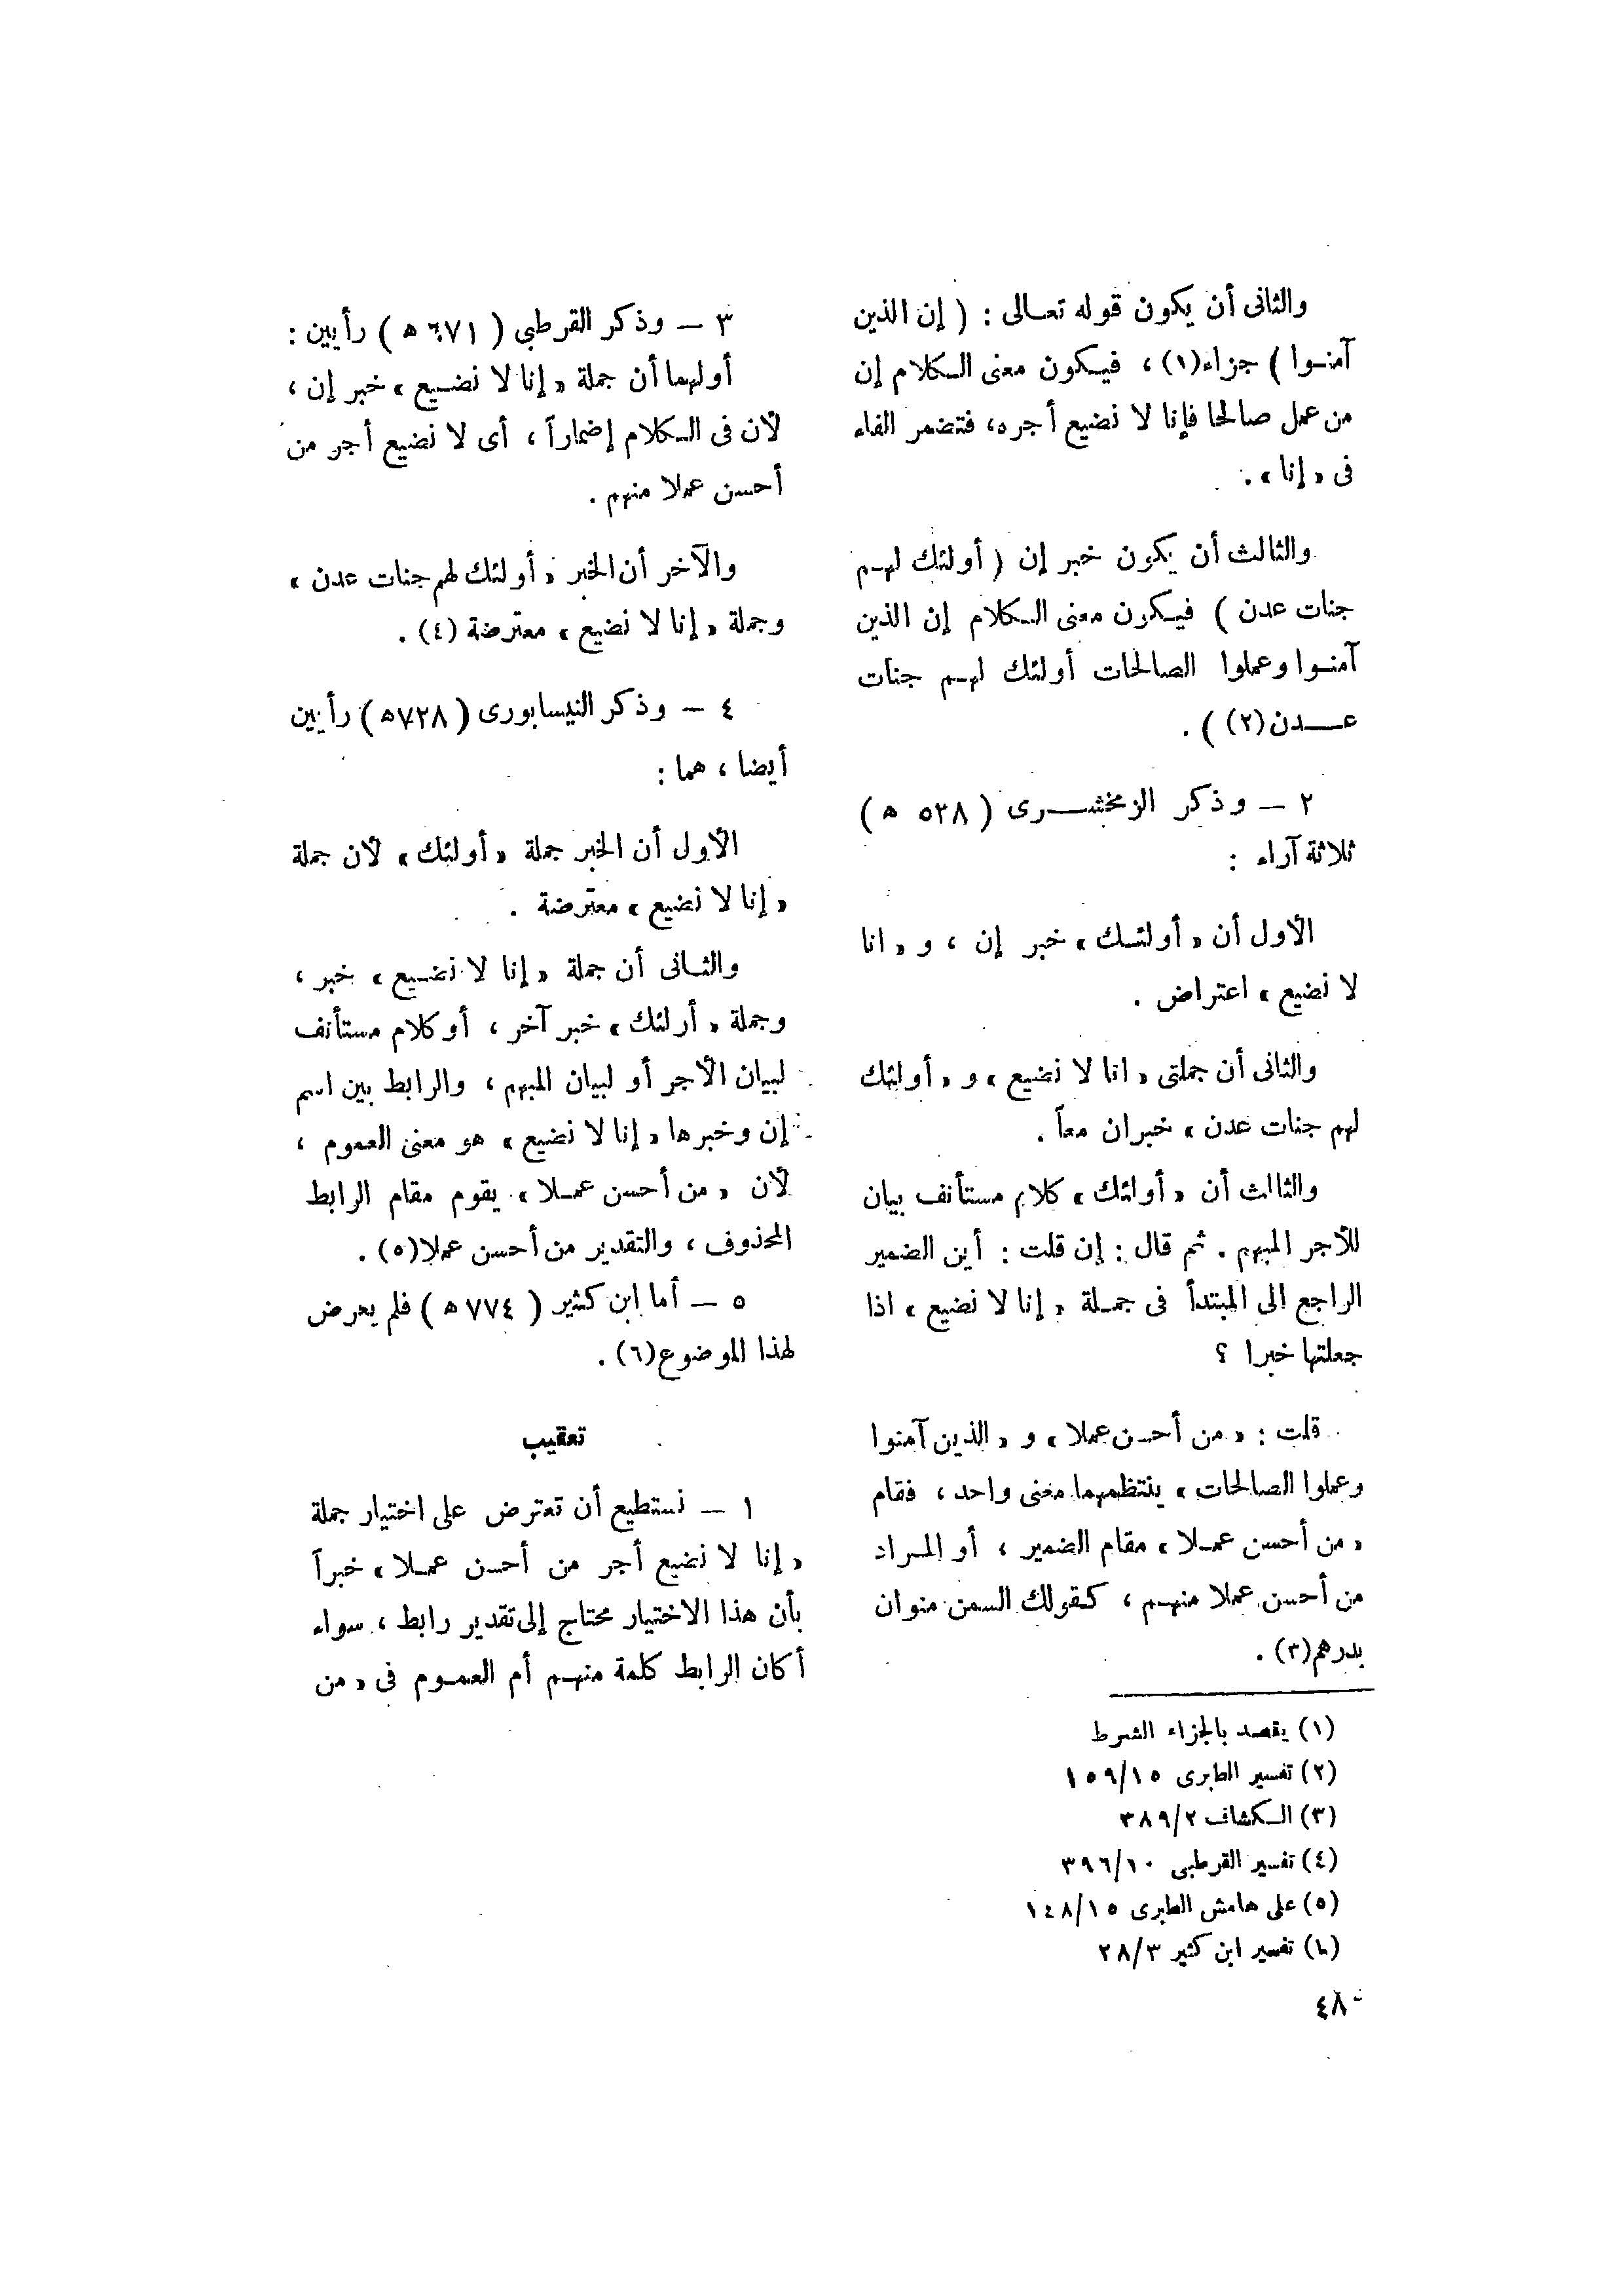 والثانى أن يكون قوله تعالى : ( إن الذين
آمنوا ) جزاء(١) ، فيكون معنى الكلام إن
من عمل صالحا فإنا لا نضيع أجره، فتضمر الفاء
فى «إنا» .
والثالث أن يكون خبر إن ( أولئك لهم
جنات عدن ) فيكون معنى الكلام إن الذين
آمنوا وعملوا الصالحات أولئك لهم جنات
عدن(٢) ) .
٢ – وذكر الزمخشرى ( ٥٣٨ ه )
ثلاثة آراء :
الأول أن «أولئك» خبر إن ، و «انا
لا نضيع» اعتراض .
والثانى أن جملتى «انا لا نضيع» و «أولئك
لهم جنات عدن» خبران معاً .
والثالث أن «أولئك» كلام مستأنف بيان
للأجر المبهم . ثم قال : إن قلت : أين الضمير
الراجع الى المبتدأ فى جملة «إنا لا نضيع» اذا
جعلتها خبرا ؟
قلت : «من أحسن عملا» و «الذين آمنوا
وعملوا الصالحات» ينتظمهما معنى واحد ، فقام
«من أحسن عملا» مقام الضمير ، أو المراد
من أحسن عملا منهم ، كقولك السمن منوان
بدرهم(٣) .
(١) يقصد بالجزاء الشرط
(٢) تفسير الطبرى ١٥٩/١٥
(٣) الكشاف ٣٨٩/٢
(٤) تفسير القرطبى ٣٩٦/١٠
(٥) على هامش الطبرى ١٤٨/١٥
(٦) تفسير ابن كثير ٢٨/٣
٤٨
٣ – وذكر القرطبى ( ٦٧١ ه ) رأيين :
أولهما أن جملة «إنا لا نضيع» خبر إن ،
لأن فى الكلام إضماراً ، أى لا نضيع أجر من
أحسن عملا منهم .
والآخر أن الخبر «أولئك لهم جنات عدن»
وجملة «إنا لا نضيع» معترضة (٤) .
٤ – وذكر النيسابورى ( ٧٢٨ه ) رأيين
أيضا ، هما :
الأول أن الخبر جملة «أولئك» لأن جملة
«إنا لا نضيع» معترضة .
والثانى أن جملة «إنا لا نضيع» خبر ،
وجملة «أرلئك» خبر آخر ، أو كلام مستأنف
لبيان الأجر أو لبيان المبهم ، والرابط بين اسم
إن وخبرها «إنا لا نضيع» هو معنى العموم ،
لأن «من أحسن عملا» يقوم مقام الرابط
المحذوف ، والتقدير من أحسن عملا(٥) .
٥ – أما ابن كثير ( ٧٧٤ ه ) فلم يعرض
لهذا الموضوع(٦) .
تعقيب
١ – نستطيع أن نعترض على اختيار جملة
«إنا لا نضيع أجر من أحسن عملا» خبراً
بأن هذا الاختيار محتاج إلى تقدير رابط ، سواء
أكان الرابط كلمة منهم أم العموم فى «من